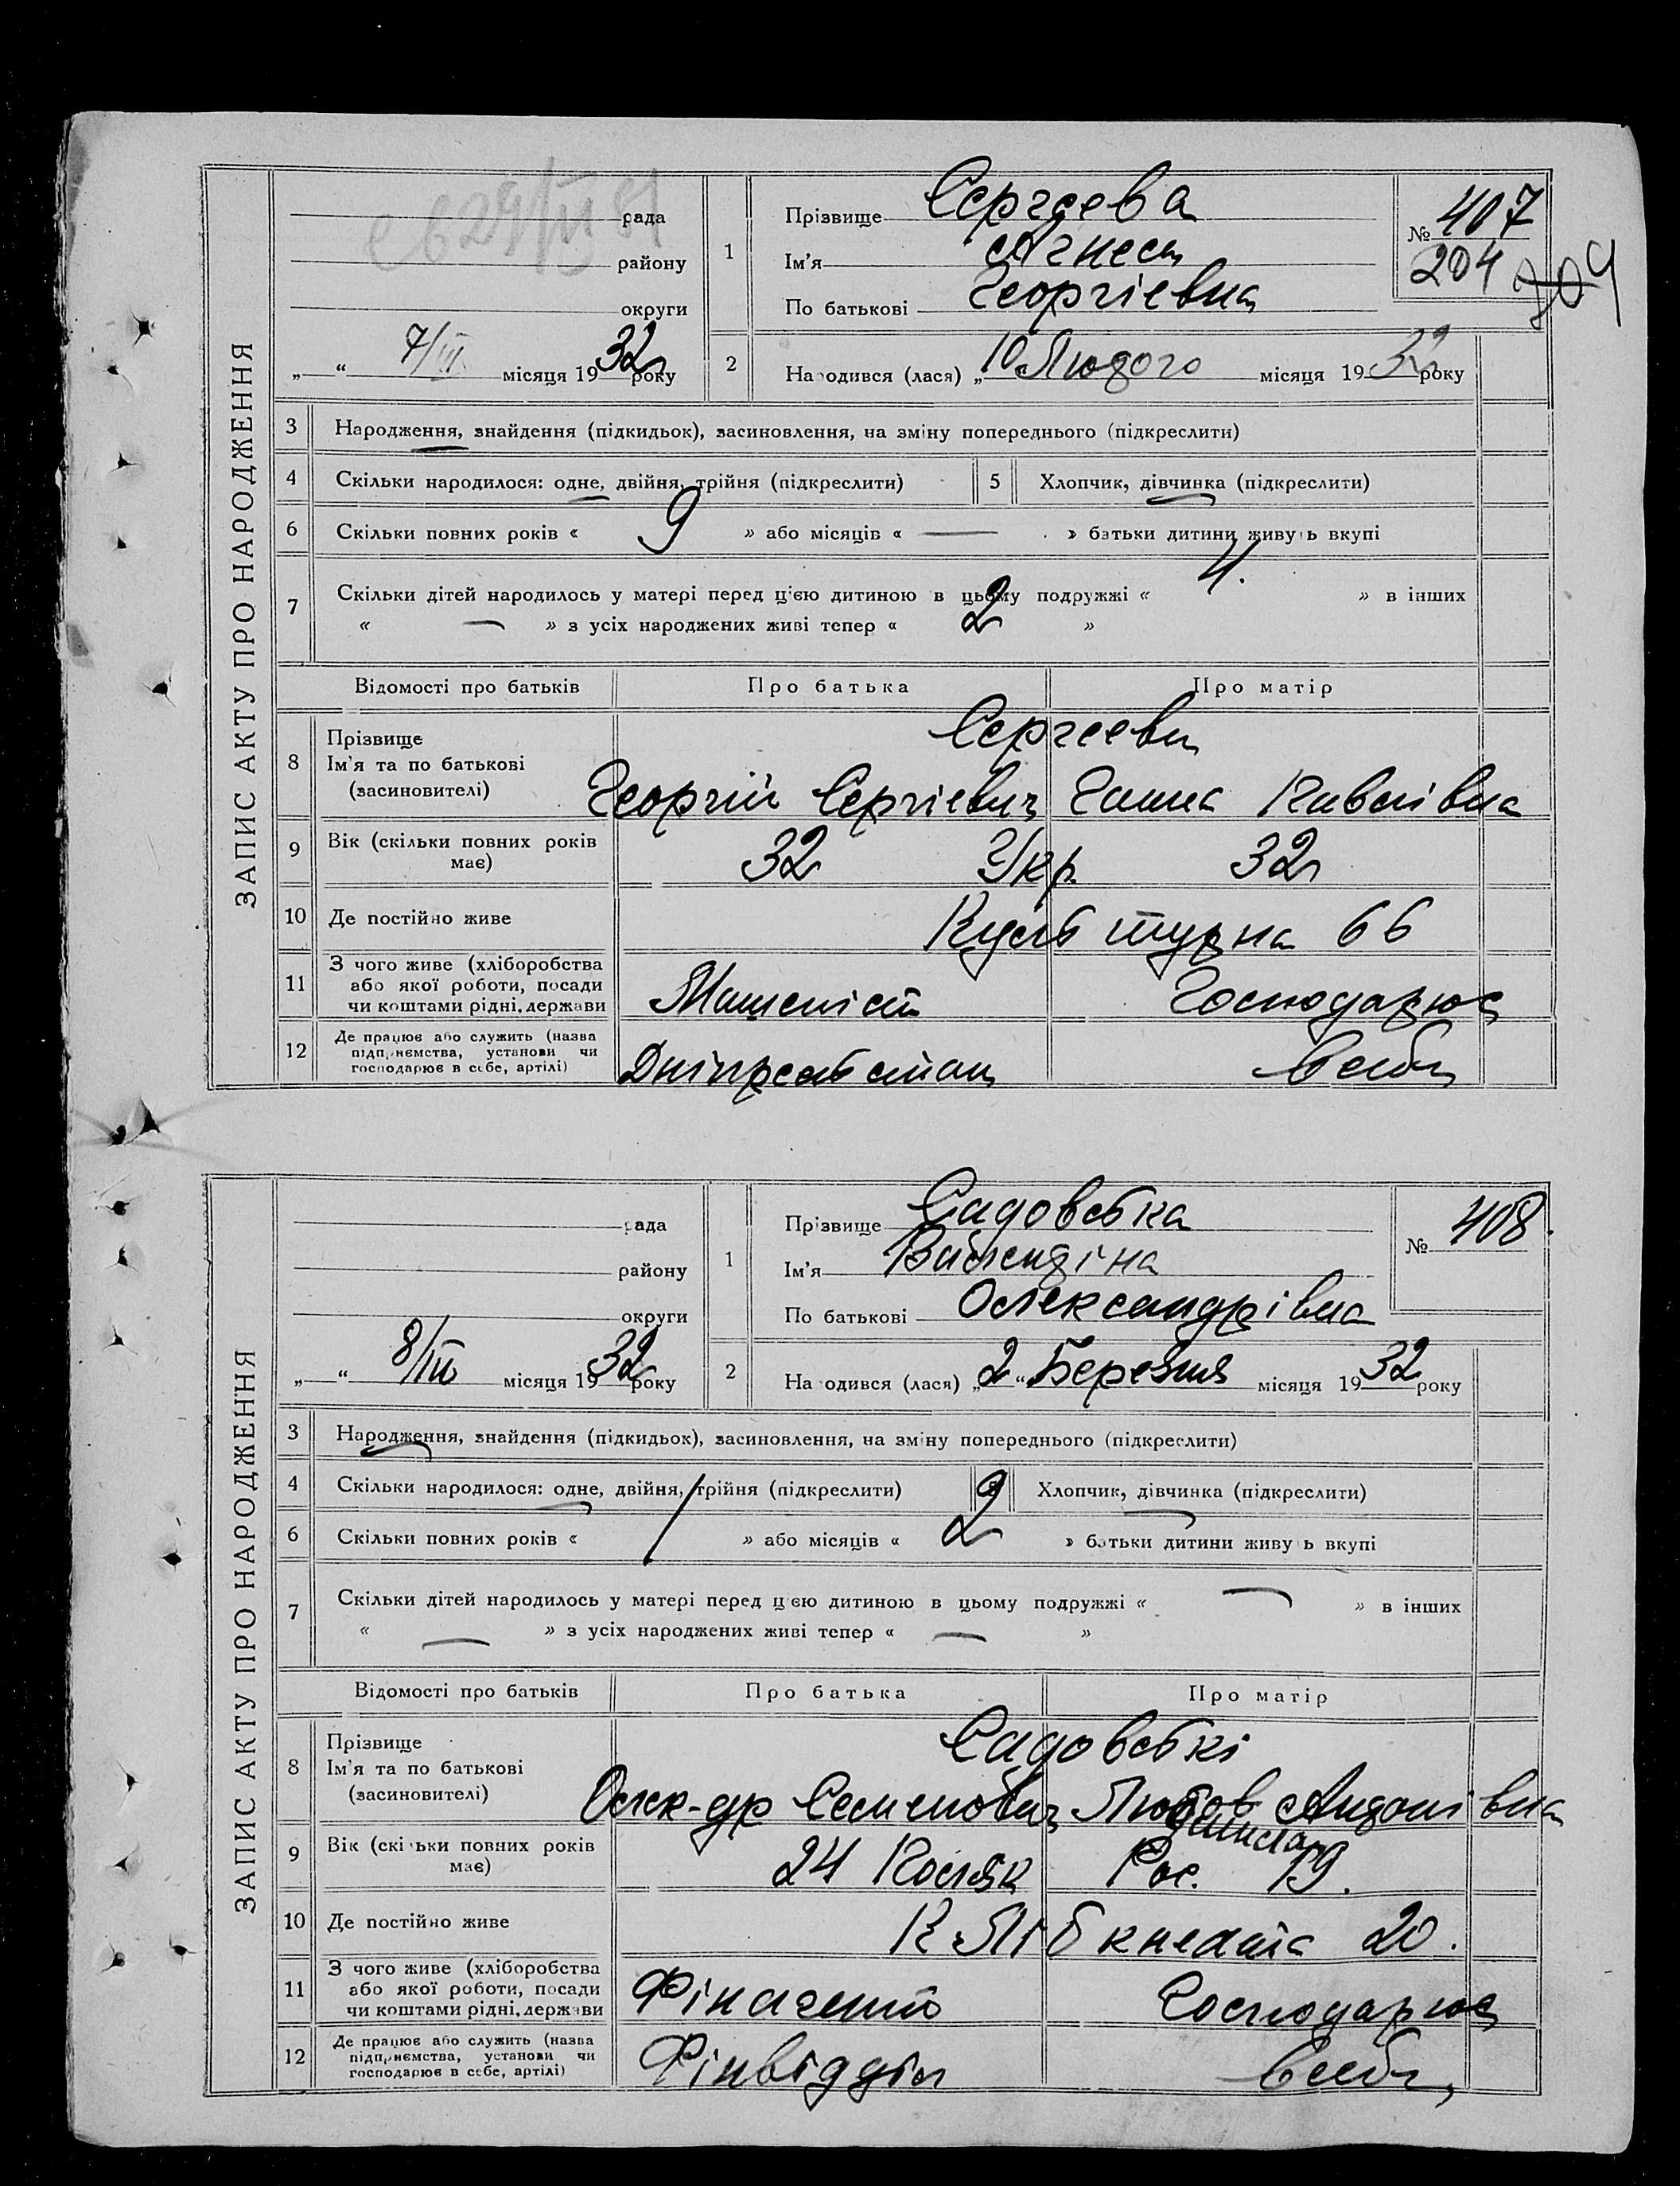 ЗАПИС АКТУ ПРО НАРОДЖЕННЯ
рада
району
округи
„ “ 7/III місяця 1932 року
1
Прізвище Сергеева
Ім'я Агнеса
По батькові Георгіевна
№ 407
204 204
2
Народився (лася) „10 Лютого місяця 1932 року
3 Народження, знайдення (підкидьок), засиновлення, на зміну попереднього (підкреслити)
4 Скільки народилося: одне, двійня, трійня (підкреслити) 5 Хлопчик, дівчинка (підкреслити)
6 Скільки повних років « 9 » або місяців « — » батьки дитини живуть вкупі
7 Скільки дітей народилось у матері перед цією дитиною в цьому подружжі « 4. » в інших
« — » з усіх народжених живі тепер « 2 »
Відомості про батьків Про батька Про матір
8 Прізвище Сергееви
Ім'я та по батькові
(засиновителі) Георгій Сергіевич Ганна
9 Вік (скільки повних років має) 32 Укр. 32
10 Де постійно живе Культурна 66
11 З чого живе (хліборобства або якої роботи, посади чи коштами рідні, держави Машиніст Господарює
12 Де працює або служить (назва підприємства, установи чи господарює в себе, артілі) в себе
ЗАПИС АКТУ ПРО НАРОДЖЕННЯ
рада
району
округи
„ “ 8/III місяця 1932 року
1
Прізвище Садовська
Ім'я
По батькові Олександрівна
№ 408.
2
Народився (лася) „2“ Березня місяця 1932 року
3 Народження, знайдення (підкидьок), засиновлення, на зміну попереднього (підкреслити)
4 Скільки народилося: одне, двійня, трійня (підкреслити) 5 Хлопчик, дівчинка (підкреслити)
6 Скільки повних років « / » або місяців « 2 » батьки дитини живуть вкупі
7 Скільки дітей народилось у матері перед цією дитиною в цьому подружжі « — » в інших
« — » з усіх народжених живі тепер « — »
Відомості про батьків Про батька Про матір
8 Прізвище Садовські
Ім'я та по батькові
(засиновителі) Олек-др Семенович Любов
9 Вік (скільки повних років має) 24 Поляк Рос. 19.
10 Де постійно живе К. Лібкнехта 20.
11 З чого живе (хліборобства або якої роботи, посади чи коштами рідні, держави Фінагент Господарює
12 Де працює або служить (назва підприємства, установи чи господарює в себе, артілі) Фінвідділ в себе